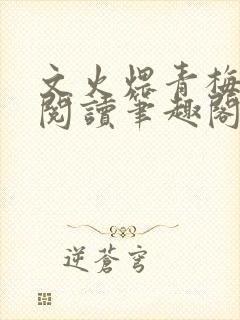 文火煨青梅
閱讀筆趣閣
逆蒼穹